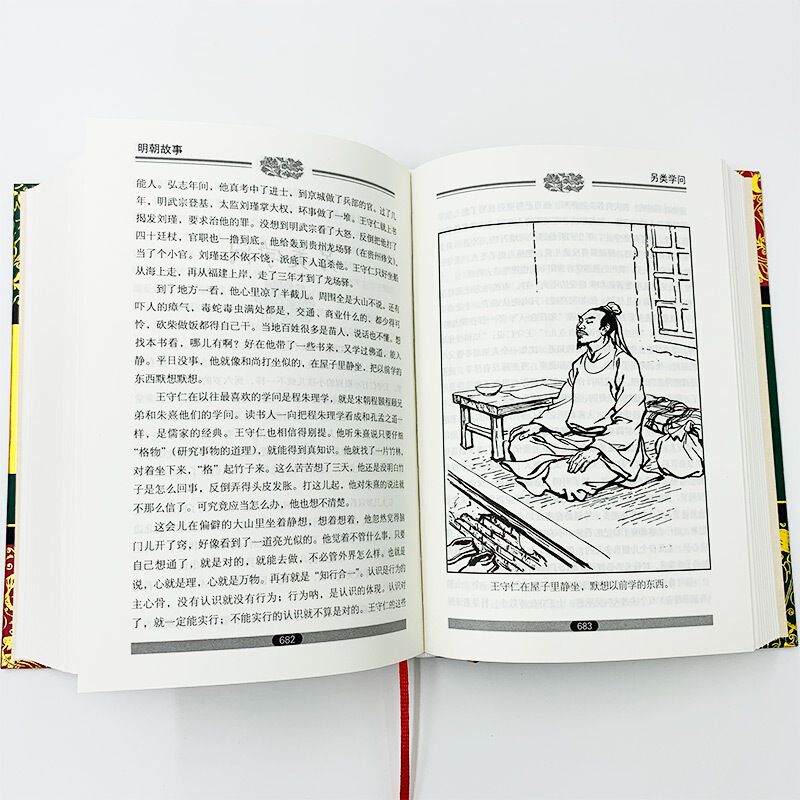 明朝故事
能人。弘志年间，他真考中了进士，到京城做了兵部的官，过了几
年，明武宗登基，太监刘瑾掌大权，坏事做了一堆。王守仁就上书
揭发刘瑾，要求治他的罪。没想到明武宗看了大怒，反倒把他打了
四十廷杖，官职也一撸到底。他给轰到贵州龙场驿（在贵州修文），
当了个小官。刘瑾还不依不饶，派底下人追杀他。王守仁只好坐船
从海上走，再从福建上岸，走了三年才到了龙场驿。
到了地方一看，他心里凉了半截儿。周围全是大山不说，还有
吓人的瘴气，毒蛇毒虫满处都是，交通、商业什么的，都少得可
怜，砍柴做饭都得自己干。当地百姓很多是苗人，说话也不懂。想
找本书看，哪儿有啊？好在他带了一些书来，又学过佛道，能入
静。平日没事，他就像和尚打坐似的，在屋子里静坐，把以前学的
东西默想默想。
王守仁在以往最喜欢的学问是程朱理学，就是宋朝程颢程颐兄
弟和朱熹他们的学问。读书人一向把程朱理学看成和孔孟之道一
样，是儒家的经典。王守仁也相信得别提。他听朱熹说只要仔细
“格物”（研究事物的道理），就能得到真知识。他就找了一片竹林，
对着坐下来，“格”起竹子来。这么苦苦想了三天，他还是没明白竹
子是怎么回事，反倒弄得头皮发胀。打这儿起，他对朱熹的说法就
不那么信了。可究竟应当怎么办，他也想不清楚。
这会儿在偏僻的大山里坐着静想，想着想着，他忽然觉得脑
门儿开了窍，好像看到了一道亮光似的。他觉着不管什么事，只要
自己想通了，就是对的，就能去做，不必管外界怎么样。也就是
说，心就是理，心就是万物。再有就是“知行合一”。认识是行为的
主心骨，没有认识就没有行为；行为呐，是认识的体现。认识对
了，就一定能实行；不能实行的认识就不算是对的。王守仁的这些
682
另类学问
王守仁在屋子里静坐，默想以前学的东西。
683